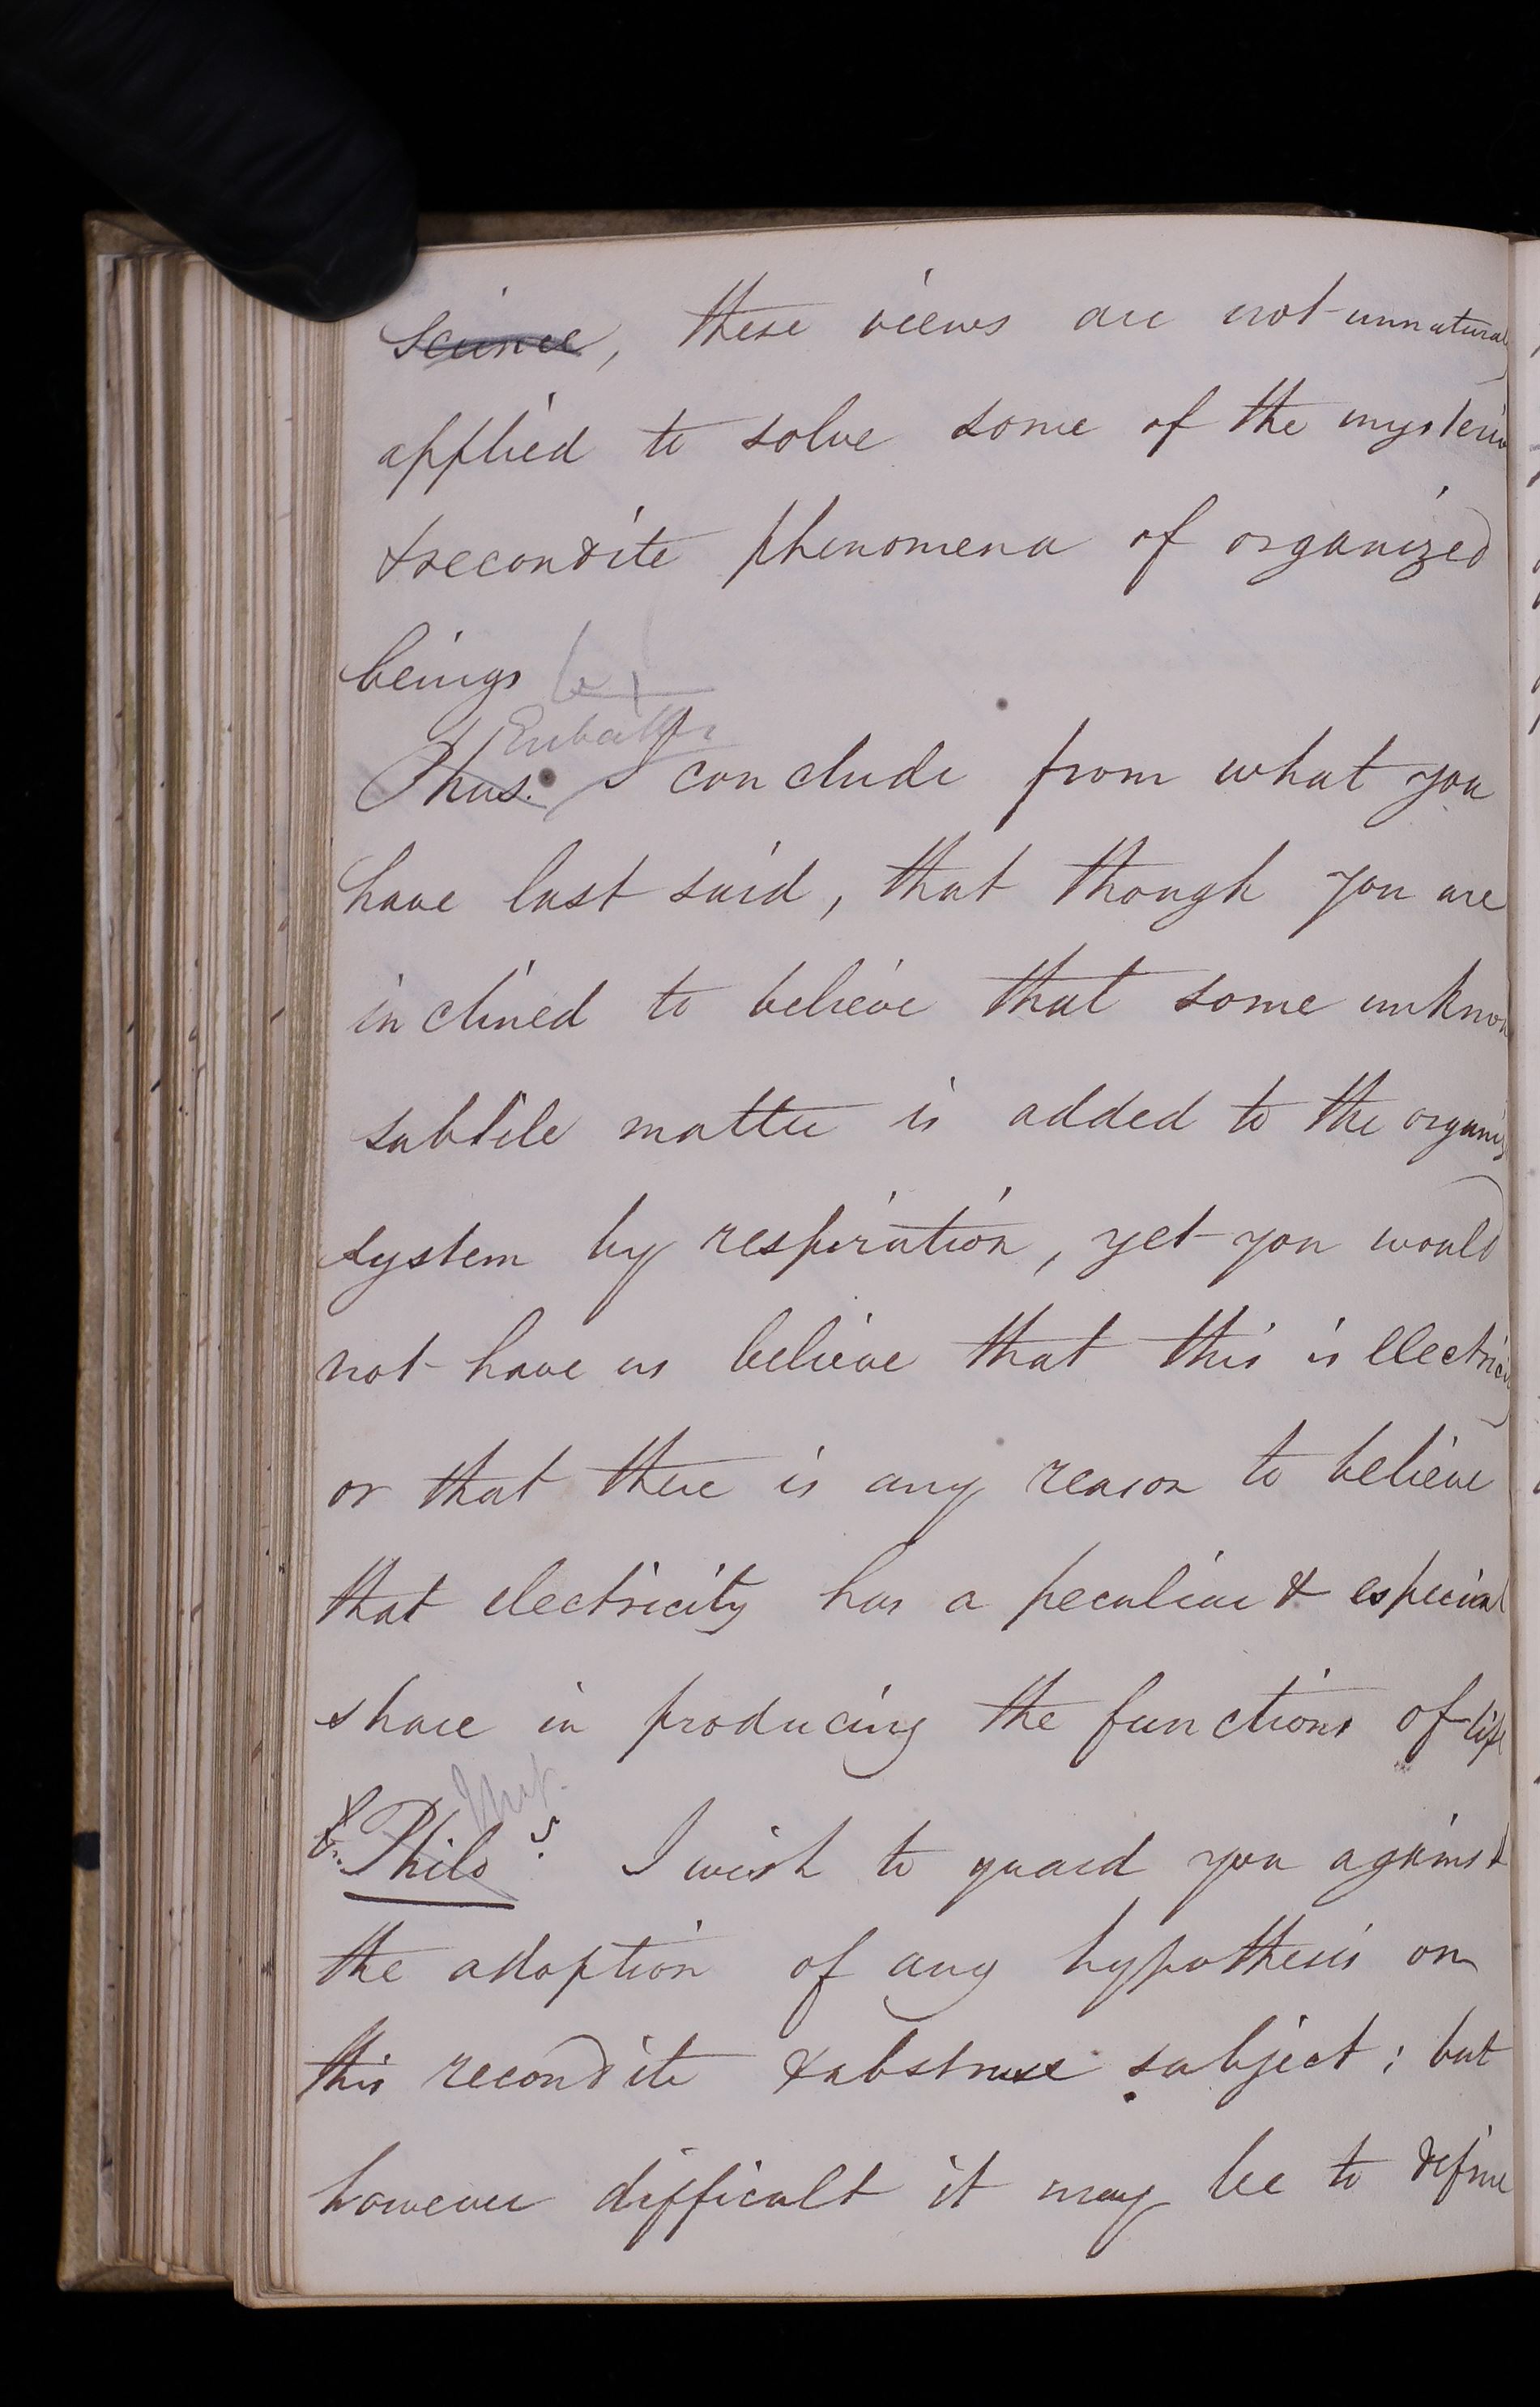 Science, these views are not unnatural
applied to solve some of the mysterious
& recondite phenomena of organized
beings
Eubathes
Phus. I conclude from what you
have last said, that though you are
inclined to believe that some unknow
subtile matter is added to the organis
system by respiration, yet you would
not have us believe that this is electrici
or that there is any reason to believe
that electricity has a peculiar & especial
share in producing the functions of life
Philos. I wish to guard you against
the adoption of any hypothesis on
this recondite & abstruse subject; but
however difficult it may be to define